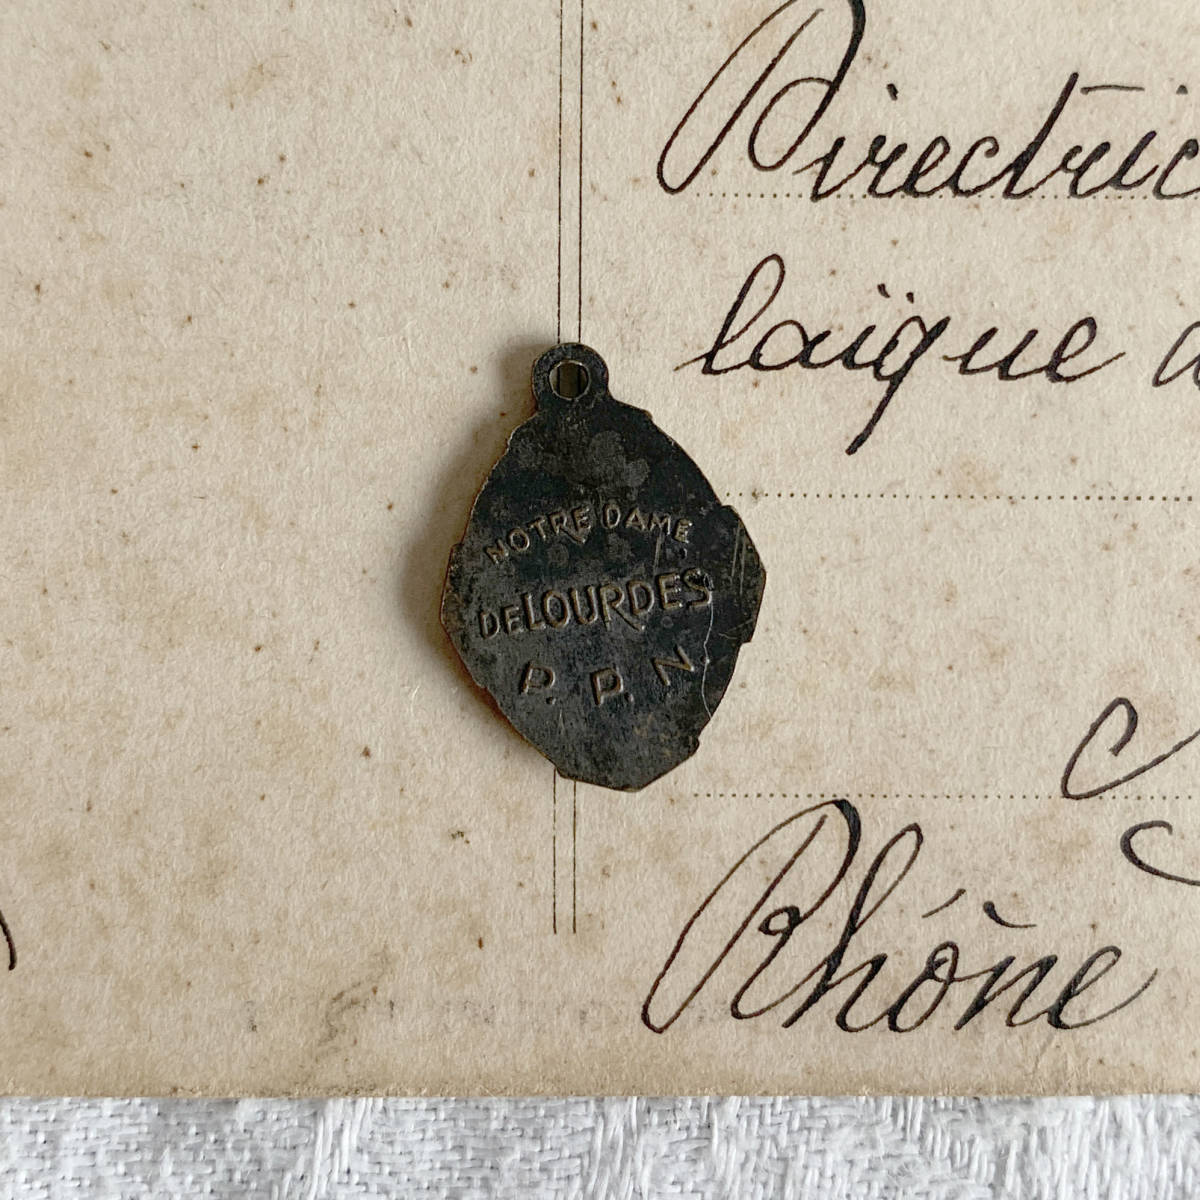 Directric
laïque
NOTRE DAME
DE LOURDES
P. P. N.
Rhône